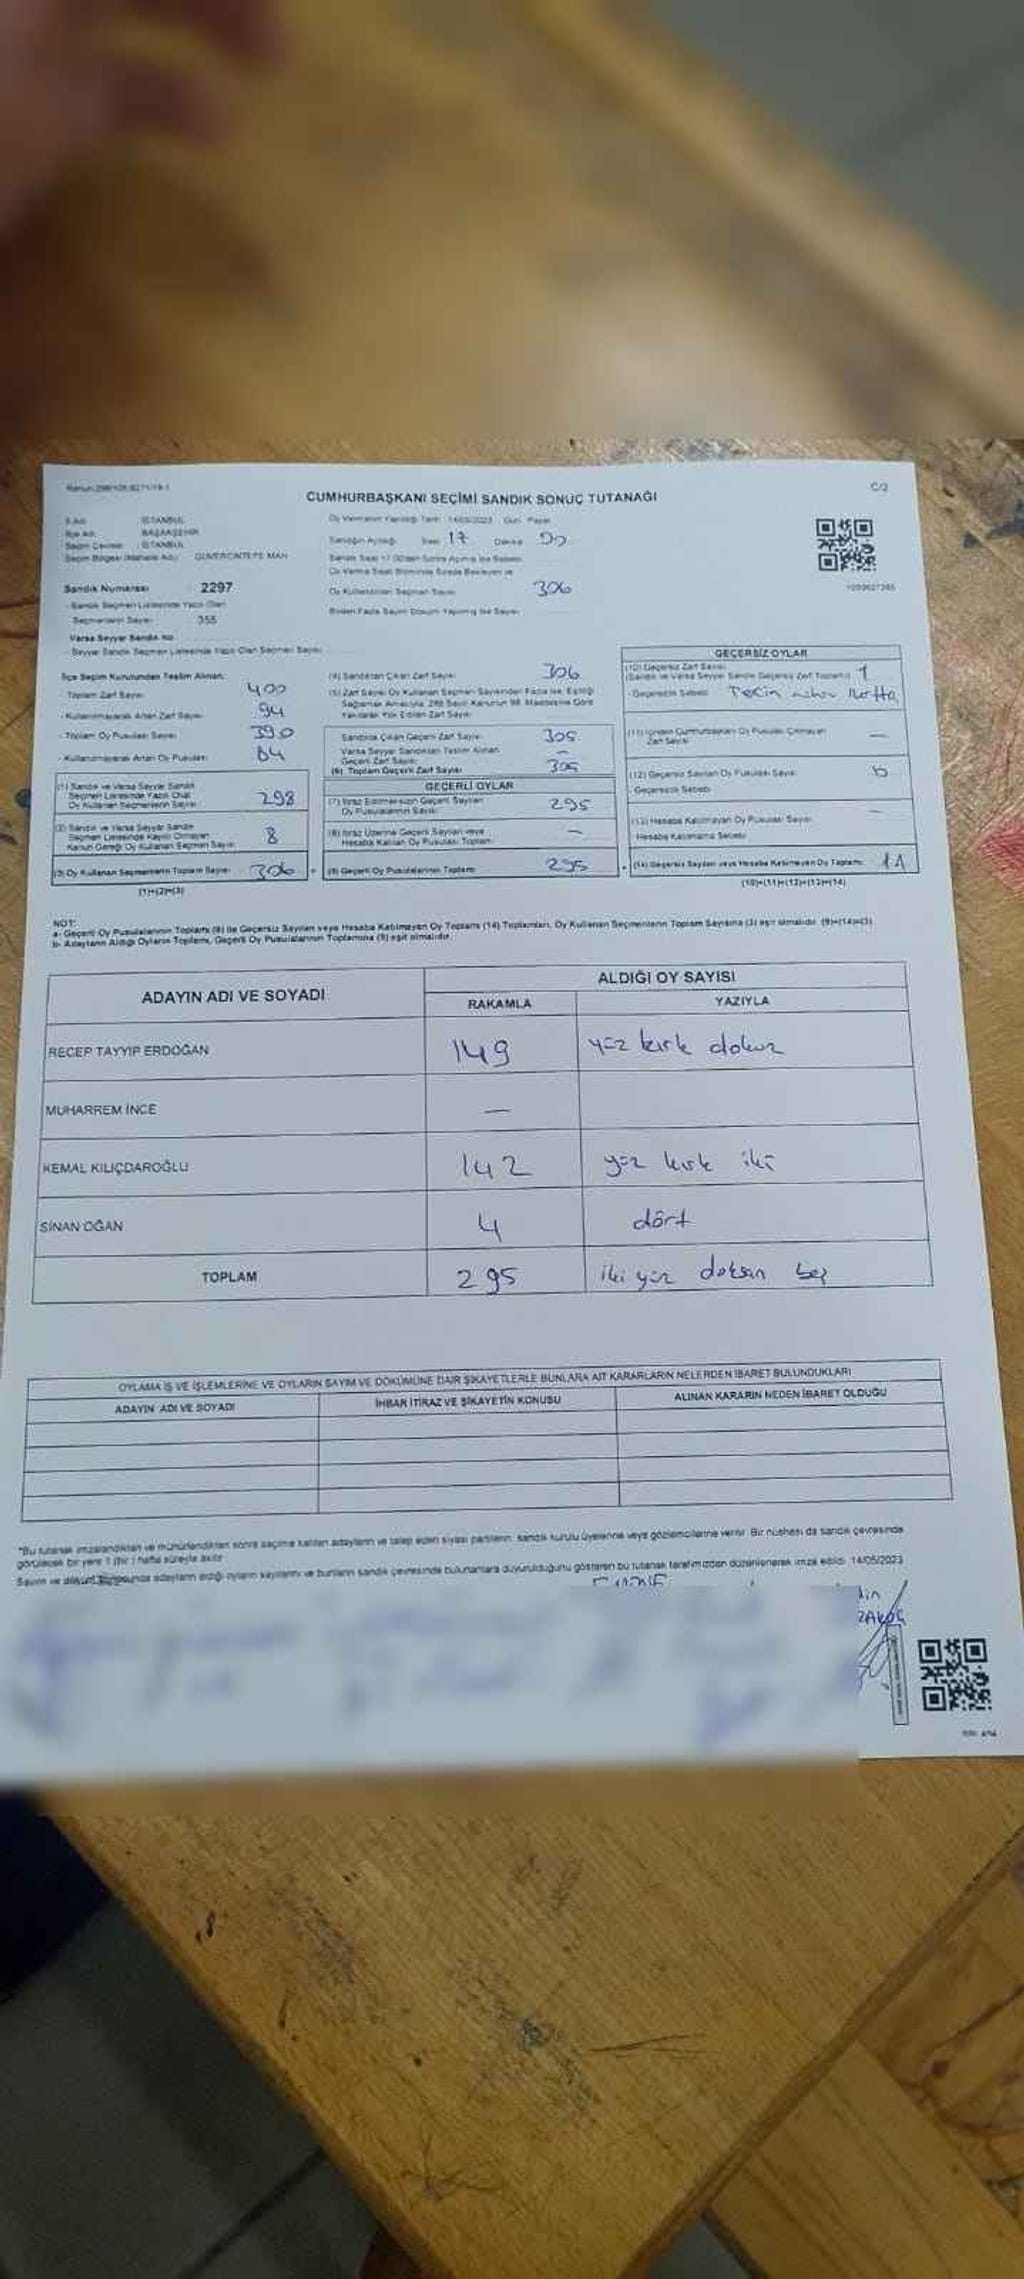 CUMHURBAŞKANI SEÇİMİ SANDIK SONUÇ TUTANAĞI
C/2
İl Adı İSTANBUL
İlçe Adı BAŞAKŞEHİR
Seçim Çevresi İSTANBUL
Seçim Bölgesi (Mahalle Adı) GÜVERCİNTEPE MAH.
Oy Vermenin Yapıldığı Tarih 14/05/2023 Gün Pazar
Sandığın Açıldığı Saat 17 Dakika
Oy Kullandırılan Seçmen Sayısı 306
Sandık Numarası 2297
Sandık Seçmen Listesinde Yazılı Olan
Seçmenlerin Sayısı 355
Varsa Seyyar Sandık No
Seyyar Sandık Seçmen Listesinde Yazılı Olan Seçmen Sayısı
İlçe Seçim Kurulundan Teslim Alınan:
- Toplam Zarf Sayısı 400
- Kullanılmayarak Artan Zarf Sayısı 94
- Toplam Oy Pusulası Sayısı 390
- Kullanılmayarak Artan Oy Pusulası 84
(1) Sandık ve Varsa Seyyar Sandık
Seçmen Listesinde Yazılı Olup
Oy Kullanan Seçmenlerin Sayısı 298
(2) Sandık ve Varsa Seyyar Sandık
Seçmen Listesinde Kayıtlı Olmayan
Kanun Gereği Oy Kullanan Seçmen Sayısı 8
(3) Oy Kullanan Seçmenlerin Toplam Sayısı 306
(1)+(2)=(3)
(4) Sandıktan Çıkan Zarf Sayısı 306
(5) Zarf Sayısı Oy Kullanan Seçmen Sayısından Fazla ise, Eşitliği
Sağlamak Amacıyla, 298 Sayılı Kanunun 98. Maddesine Göre
Yakılarak Yok Edilen Zarf Sayısı
Sandıkta Çıkan Geçerli Zarf Sayısı 305
Varsa Seyyar Sandıktan Teslim Alınan
Geçerli Zarf Sayısı —
(6) Toplam Geçerli Zarf Sayısı 305
GEÇERLİ OYLAR
(7) İtiraz Edilmeksizin Geçerli Sayılan
Oy Pusulalarının Sayısı 295
(8) İtiraz Üzerine Geçerli Sayılan veya
Hesaba Katılan Oy Pusulası Toplamı —
(9) Geçerli Oy Pusulalarının Toplamı 295
GEÇERSİZ OYLAR
(10) Geçersiz Zarf Sayısı
(Sandık ve Varsa Seyyar Sandık Geçersiz Zarf Toplamı) 1
- Geçersizlik Sebebi
(11) İçinden Cumhurbaşkanı Oy Pusulası Çıkmayan
Zarf Sayısı —
(12) Geçersiz Sayılan Oy Pusulası Sayısı
- Geçersizlik Sebebi
(13) Hesaba Katılmayan Oy Pusulası Sayısı —
- Hesaba Katılmama Sebebi
(14) Geçersiz Sayılan veya Hesaba Katılmayan Oy Toplamı 11
(10)+(11)+(12)+(13)=(14)
NOT:
a- Geçerli Oy Pusulalarının Toplamı (9) ile Geçersiz Sayılan veya Hesaba Katılmayan Oy Toplamı (14) Toplamları, Oy Kullanan Seçmenlerin Toplam Sayısına (3) eşit olmalıdır. (9)+(14)=(3)
b- Adayların Aldığı Oyların Toplamı, Geçerli Oy Pusulalarının Toplamına (9) eşit olmalıdır.
ADAYIN ADI VE SOYADI
ALDIĞI OY SAYISI
RAKAMLA YAZIYLA
RECEP TAYYİP ERDOĞAN 149 yüz kırk dokuz
MUHARREM İNCE —
KEMAL KILIÇDAROĞLU 142 yüz kırk iki
SİNAN OĞAN 4 dört
TOPLAM 295 iki yüz doksan beş
OYLAMA İŞ VE İŞLEMLERİNE VE OYLARIN SAYIM VE DÖKÜMÜNE DAİR ŞİKAYETLERLE BUNLARA AİT KARARLARIN NELERDEN İBARET BULUNDUKLARI
ADAYIN ADI VE SOYADI İHBAR İTİRAZ VE ŞİKAYETİN KONUSU ALINAN KARARIN NEDEN İBARET OLDUĞU
*Bu tutanak imzalandıktan ve mühürlendikten sonra seçime katılan adayların ve talep eden siyasi partilerin, sandık kurulu üyelerine veya gözlemcilerine verilir. Bir nüshası da sandık çevresinde
görülecek bir yere 1 (bir) hafta süreyle asılır.
Sayım ve döküm sonunda adayların aldığı oyların sayılarını ve bunların sandık çevresinde bulunanlara duyurulduğunu gösteren bu tutanak tarafımızdan düzenlenerek imza edildi. 14/05/2023